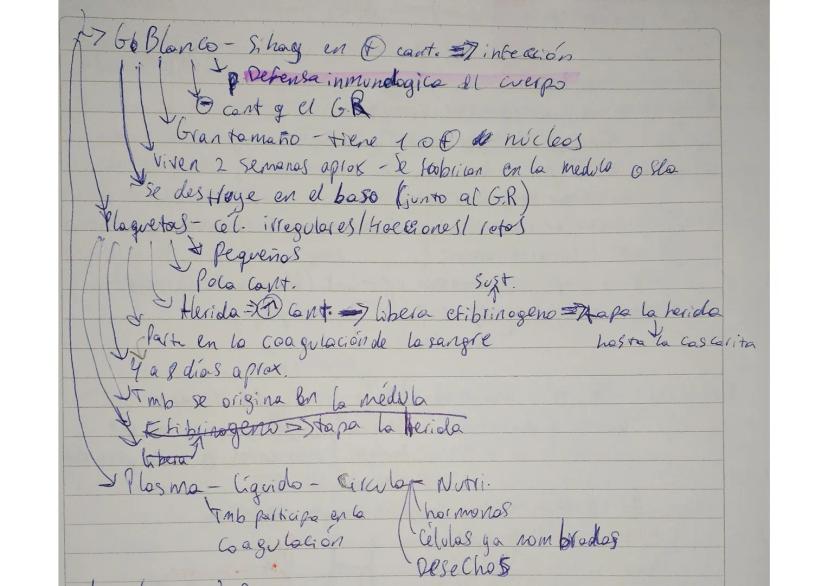 → Gb Blanco - Si hay en ⊕ cant. ⇒ infección
Defensa inmunologica el cuerpo
⊖ cant q el GR
Gran tamaño - tiene 1 o ⊕ núcleos
Viven 2 semanas aprox - Se fabrican en la medula osea
Se destruye en el baso (junto al GR)
Plaquetas - cél. irregulares/fracciones/rotas
Pequeñas
Poca cant.
sust.
Herida ⇒ ⊕ cant. → libera efibrinogeno ⇒ tapa la herida
Parte en la coagulación de la sangre
hasta la cascarita
4 a 8 días aprox.
Tmb se origina en la médula
Efibrinogeno ⇒ tapa la herida
libera
Plasma - Líquido - Circula - Nutri.
Tmb participa en la
hormonas
coagulación
Células ya nombradas
Desechos